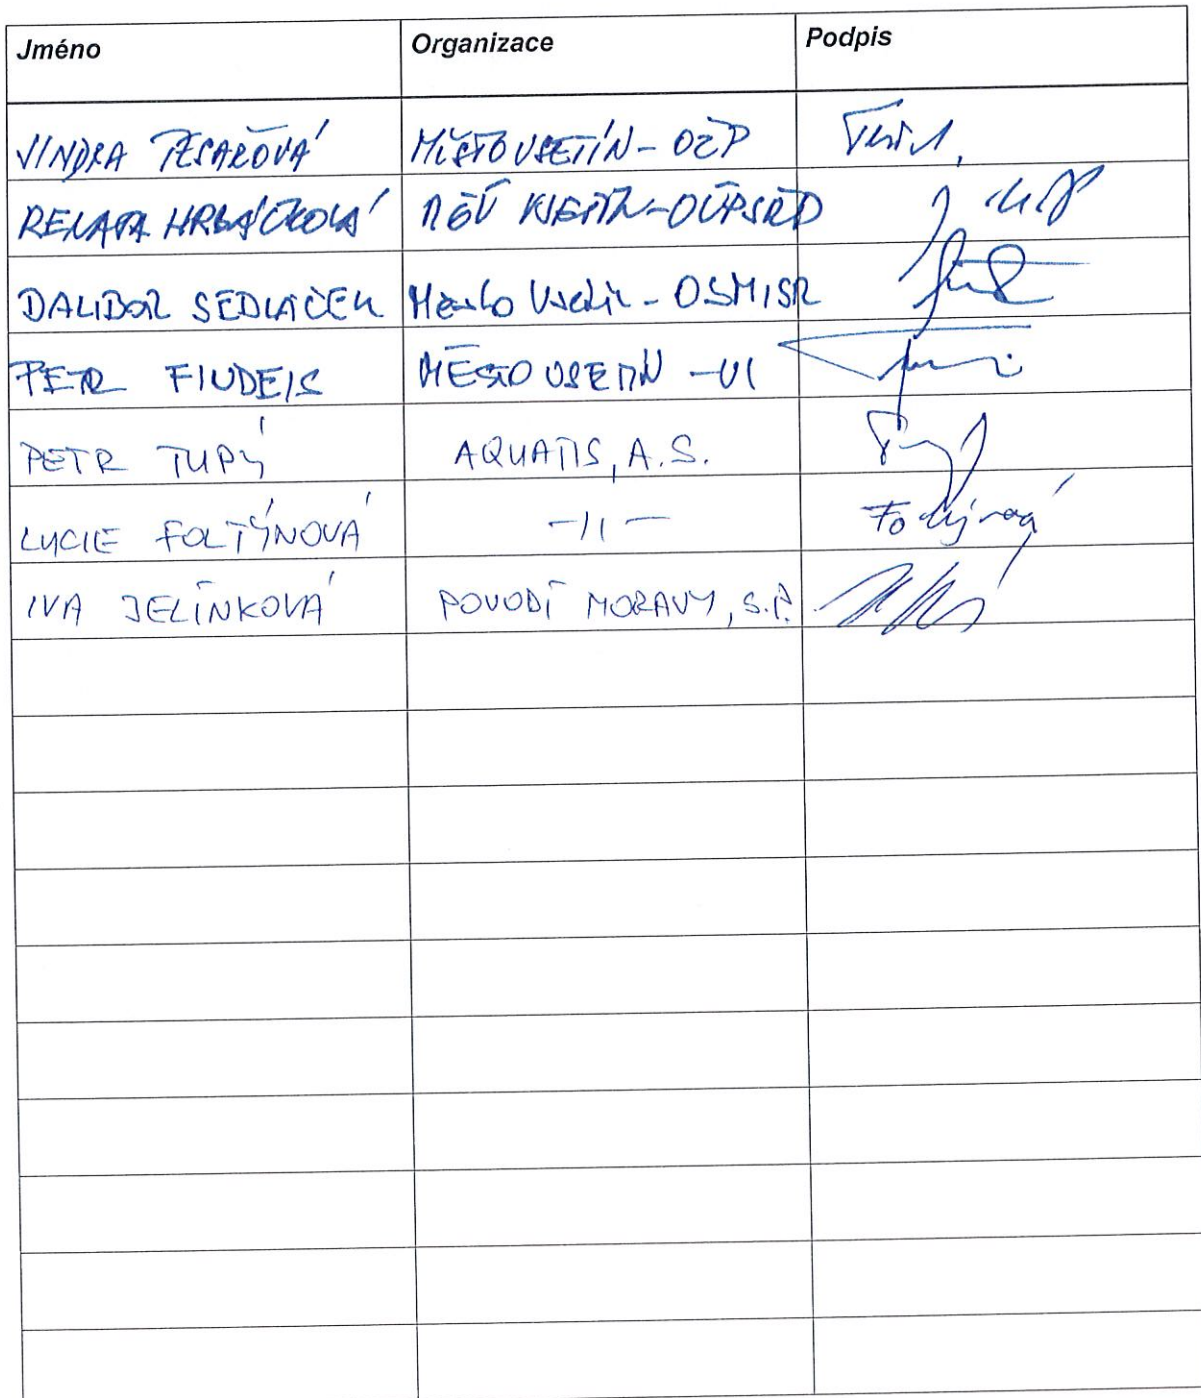 Jméno Organizace Podpis
JINDRA TESAŘOVÁ MĚSTO VSETÍN - OŽP
RENATA HRBÁČKOVÁ MěÚ VSETÍN - OÚPSŘD
DALIBOR SEDLÁČEK Město Vsetín - OSMISR
PETR FINDEJS MĚSTO VSETÍN - VI
PETR TUPÝ AQUATIS, A.S.
LUCIE FOLTÝNOVÁ -11- Foltýnová
IVA JELÍNKOVÁ POVODÍ MORAVY, S.P.